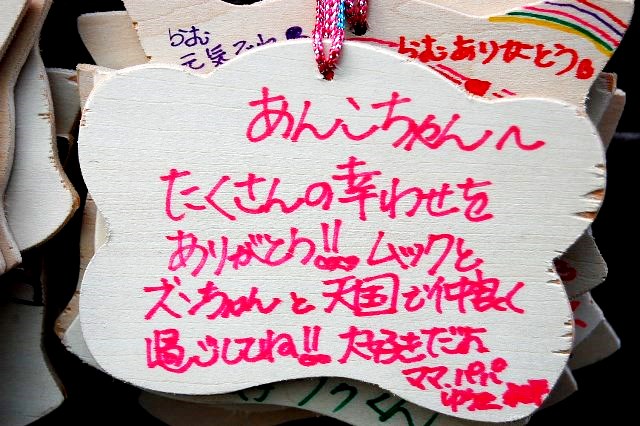 らむ
元気
らむありがとう
あんこちゃん〜
たくさんの幸わせを
ありがとう!! ムックと
ズンちゃんと天国で仲良く
過ごしてね!! 大好きだよ
ママ、パパ
ゆうた
クくん